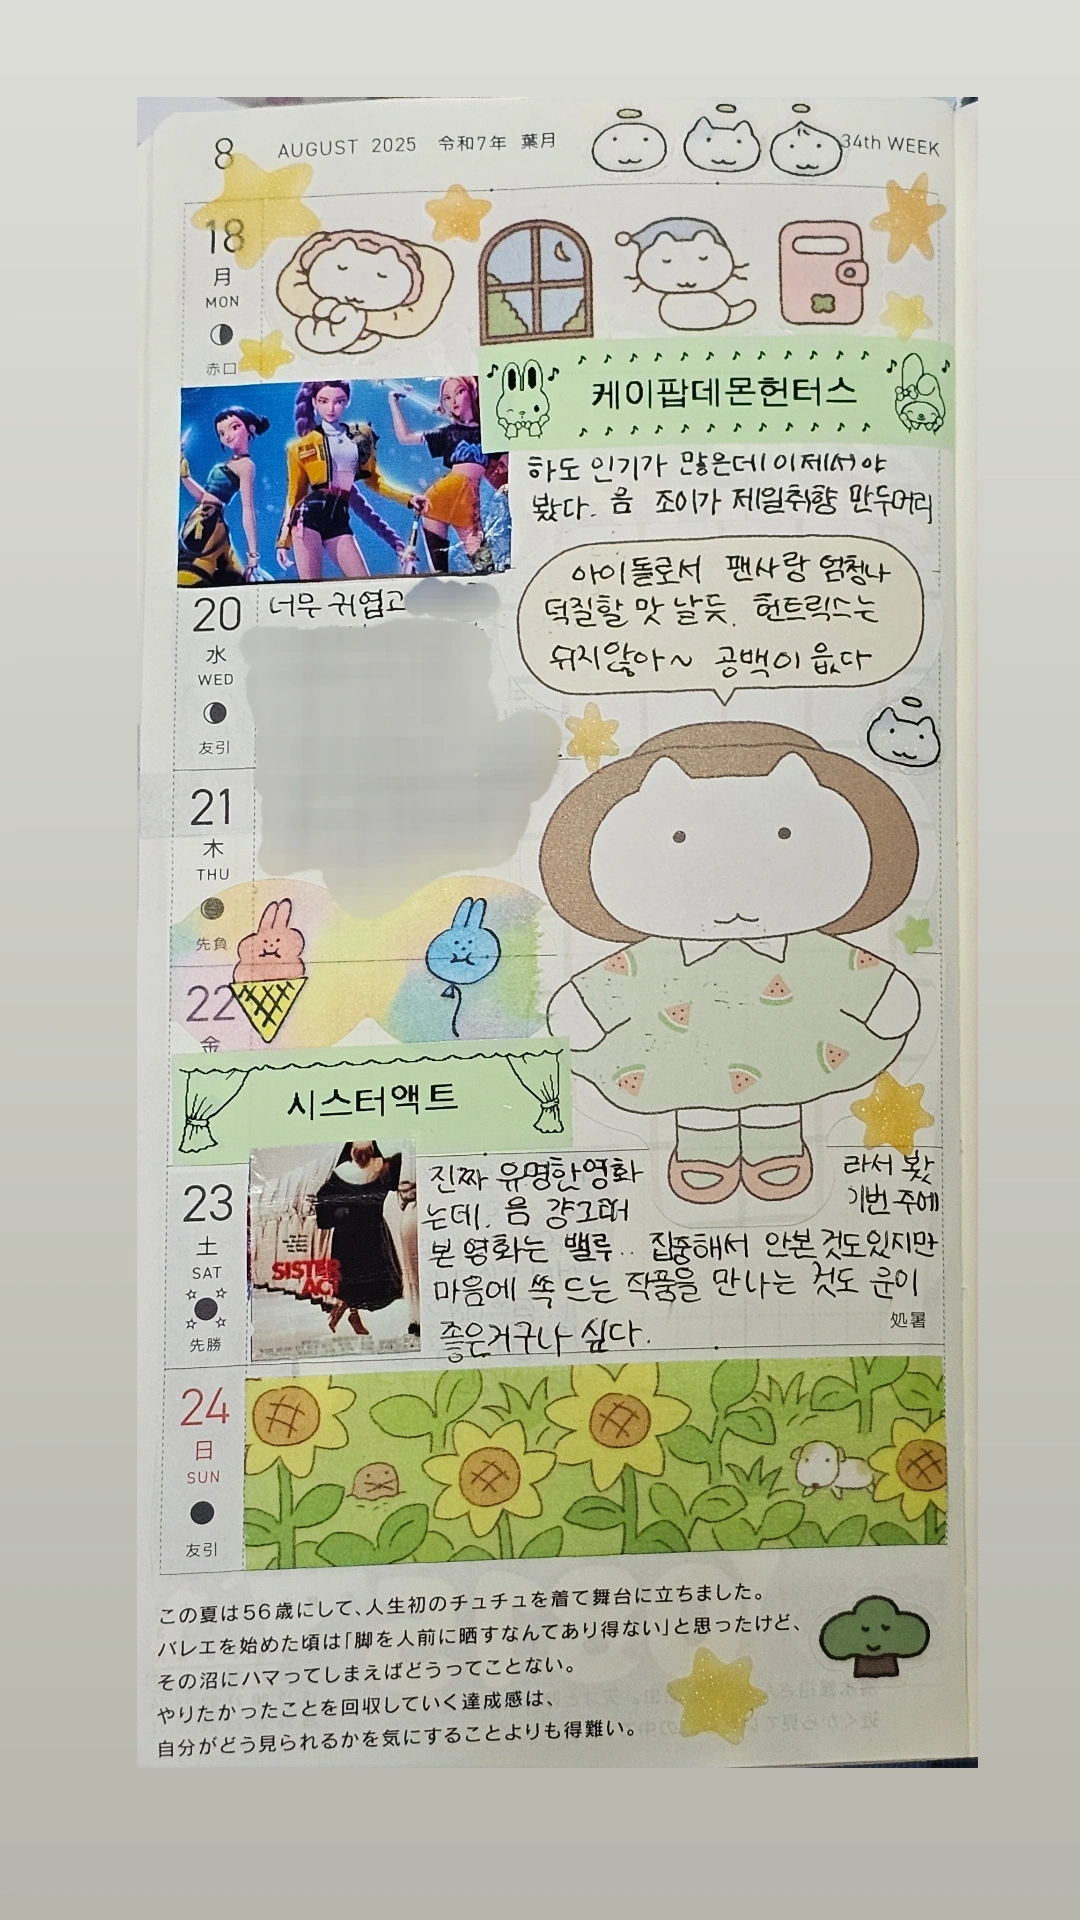 8 AUGUST 2025 令和7年 葉月 34th WEEK
18
月
MON
赤口
케이팝데몬헌터스
하도 인기가 많은데 이제서야
봤다. 음 조이가 제일취향 만두머리
아이돌로서 팬사랑 엄청나
덕질할 맛 날듯. 헌트릭스는
쉬지않아~ 공백이 읎다
20
水
WED
友引
너무 귀엽고
21
木
THU
先負
22
金
시스터액트
23
土
SAT
先勝
SISTER
ACT
진짜 유명한영화 라서 봤
는데. 음 걍그래 기번 주에
본 영화는 밸루.. 집중해서 안본 것도있지만
마음에 쏙 드는 작품을 만나는 것도 운이
좋은거구나 싶다.
処暑
24
日
SUN
友引
この夏は56歳にして、人生初のチュチュを着て舞台に立ちました。
バレエを始めた頃は「脚を人前に晒すなんてあり得ない」と思ったけど、
その沼にハマってしまえばどうってことない。
やりたかったことを回収していく達成感は、
自分がどう見られるかを気にすることよりも得難い。